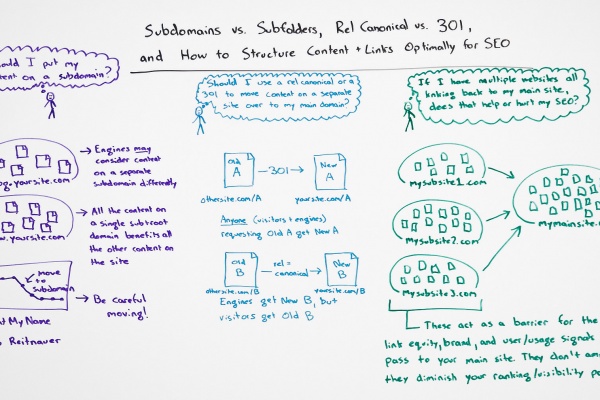 Subdomains vs. Subfolders, Rel Canonical vs. 301,
and How to Structure Content + Links Optimally for SEO
ould I put my
tent on a subdomain?
og.yoursite.com
→ Engines may
consider content
on a separate
subdomain differently
w.yoursite.com
→ All the content on
a single sub+root
domain benefits all
the other content on
the site
move
to
subdomain
→ Be careful
moving!
t My Name
Reitnauer
Should I use a rel canonical or a
301 to move content on a separate
site over to my main domain?
Old
A
—301→
New
A
othersite.com/A
yoursite.com/A
Anyone (visitors + engines)
requesting Old A get New A
Old
B
— rel =
canonical →
New
B
othersite.com/B
yoursite.com/B
Engines get New B, but
visitors get Old B
If I have multiple websites all
linking back to my main site,
does that help or hurt my SEO?
mysubsite1.com
mysubsite2.com
mysubsite3.com
mymainsite.c
These act as a barrier for the
link equity, brand, and user/usage signals
pass to your main site. They don't am
they diminish your ranking/visibility po